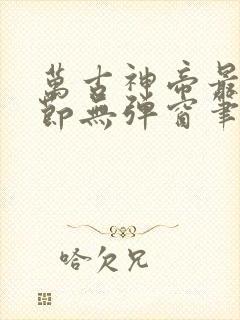 萬古神帝最
節無彈窗筆
哈欠兄